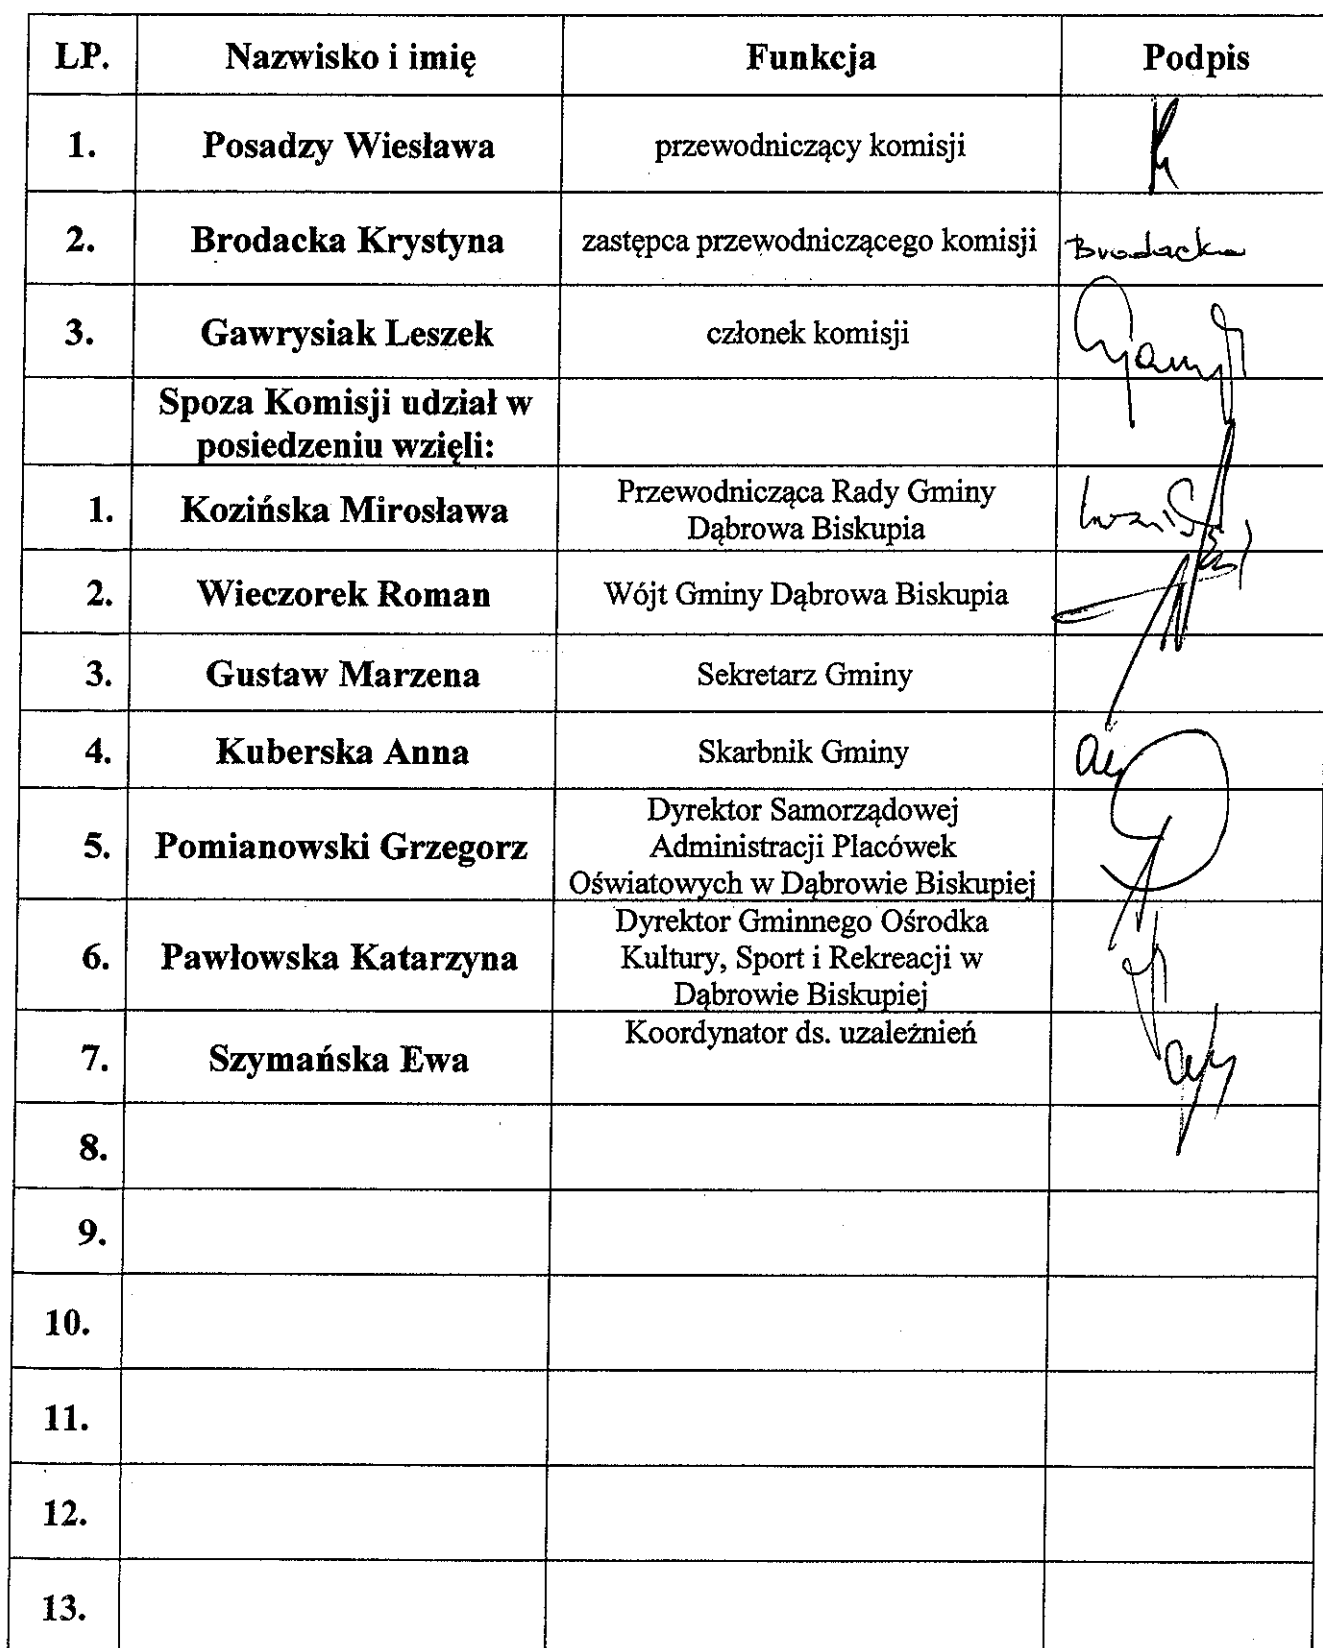 LP. Nazwisko i imię Funkcja Podpis
1. Posadzy Wiesława przewodniczący komisji
2. Brodacka Krystyna zastępca przewodniczącego komisji Brodacka
3. Gawrysiak Leszek członek komisji
Spoza Komisji udział w
posiedzeniu wzięli:
1. Kozińska Mirosława Przewodnicząca Rady Gminy
Dąbrowa Biskupia
2. Wieczorek Roman Wójt Gminy Dąbrowa Biskupia
3. Gustaw Marzena Sekretarz Gminy
4. Kuberska Anna Skarbnik Gminy
Dyrektor Samorządowej
5. Pomianowski Grzegorz Administracji Placówek
Oświatowych w Dąbrowie Biskupiej
Dyrektor Gminnego Ośrodka
6. Pawłowska Katarzyna Kultury, Sport i Rekreacji w
Dąbrowie Biskupiej
Koordynator ds. uzależnień
7. Szymańska Ewa
8.
9.
10.
11.
12.
13.